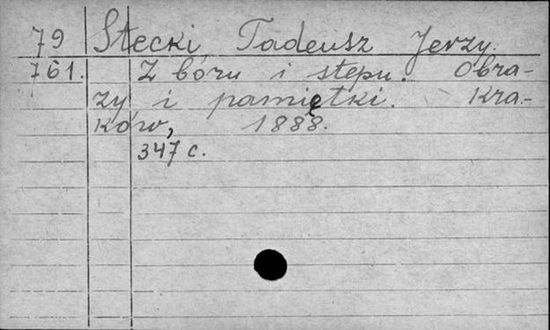 79 Stecki Tadeusz Jerzy.
761. Z boru i stepu. Obra-
zy i pamiętki. Kra-
ków, 1888.
347 c.